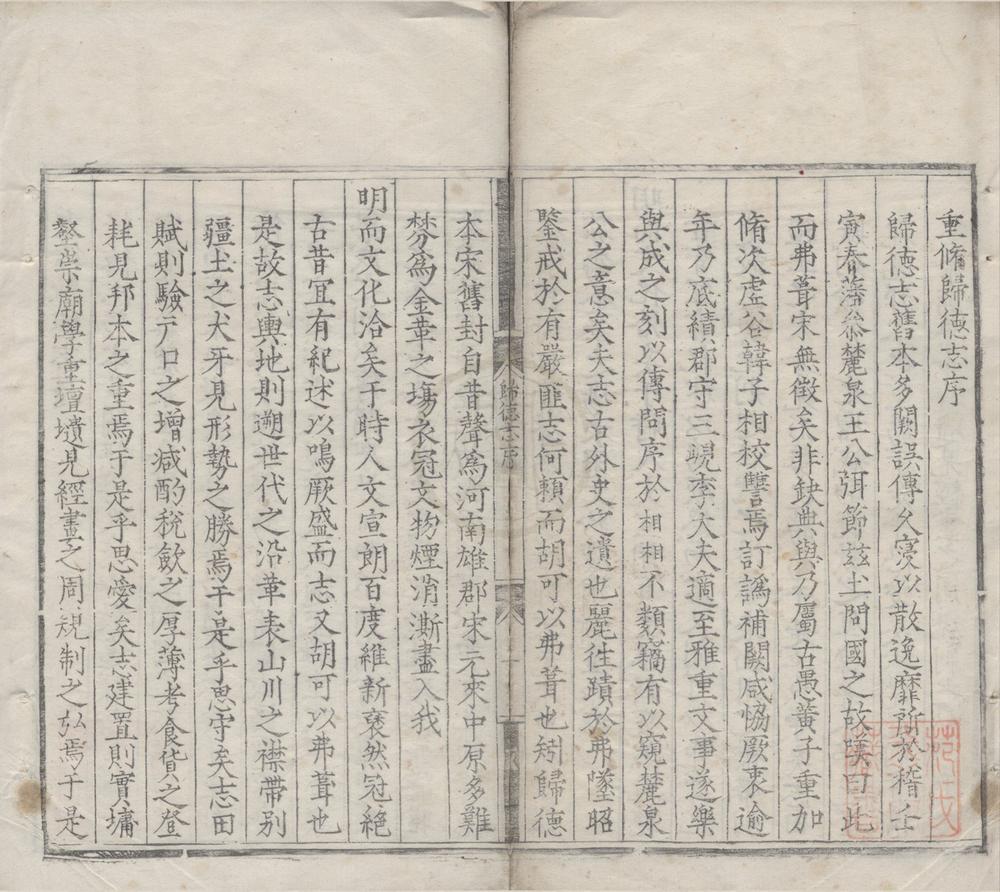 重脩歸德志序
歸德志舊本多闕誤傳久寖以散逸靡所於稽壬
寅春藩叅麓泉王公弭節茲土問國之故嘆曰此
而弗葺宋無徵矣非缺典與乃屬古愚黃子重加
脩次虛谷韓子相校讐焉訂譌補闕咸恊厥衷逾
年乃底績郡守三峴李大夫適至雅重文事遂樂
與成之刻以傳問序於相相不類竊有以窺麓泉
公之意矣夫志古外史之遺也麗徃蹟於弗墜昭
鑒戒於有嚴匪志何賴而胡可以弗葺也矧歸德
歸德志序
本宋舊封自昔聲爲河南雄郡宋元來中原多難
棼爲金革之塲衣冠文物煙消澌盡入我
明而文化洽矣于時人文宣朗百度維新裒然冠絕
古昔冝有紀述以鳴厥盛而志又胡可以弗葺也
是故志輿地則遡世代之沿革表山川之襟帶別
疆土之犬牙見形勢之勝焉于是乎思守矣志田
賦則驗戸口之增减酌稅歛之厚薄考食貨之登
耗見邦本之重焉于是乎思愛矣志建置則實墉
壑崇廟學重壇壝見經畫之周規制之弘焉于是